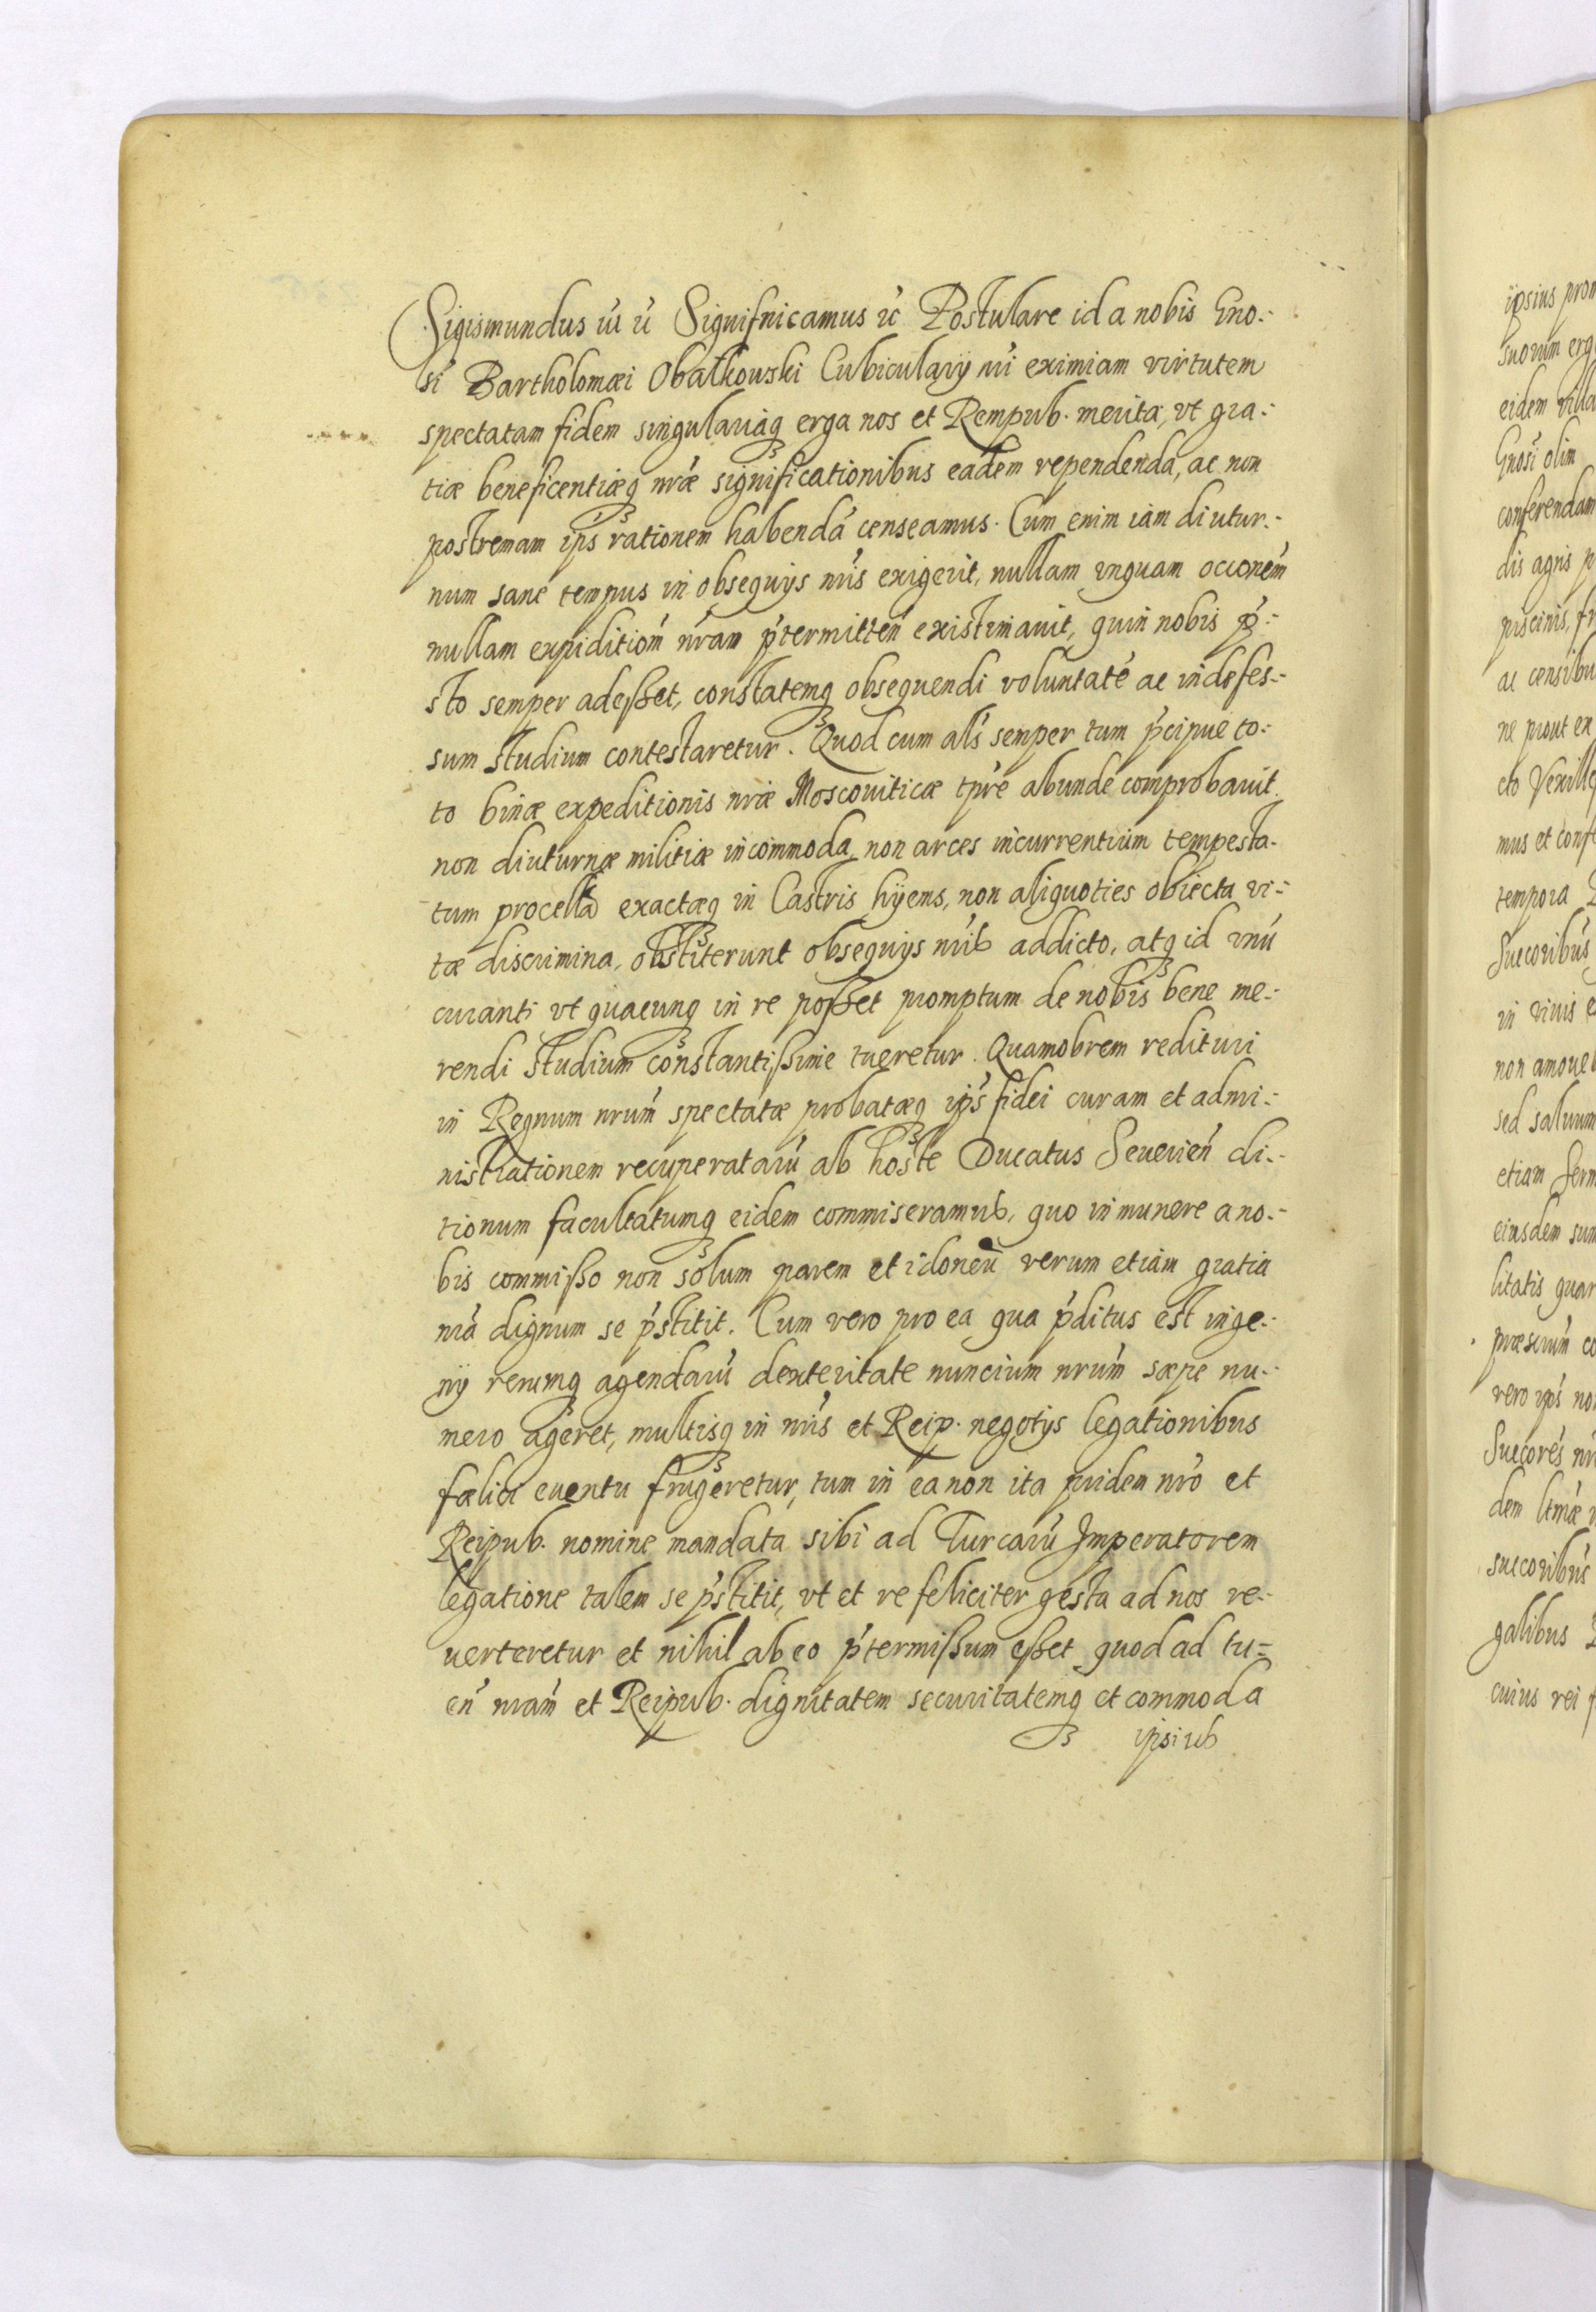 Sigismundus iii ic Signifnicamus ic Postulare id a nobis Gno-
si Bartholomæi Obalkowski Cubicularÿ nri eximiam virtutem
spectatam fidem singulariaq3 erga nos et Rempub. merita, vt gra-
tiæ beneficentiæq3 nræ significationibus eadem rependenda, ac non
postremam ips rationem habendá censeamus. Cum enim iam diutur-
num sane tempus in obsequijs nris exigerit, nullam vnquam occonem
nullam expiditiom nram ptermitten existimauit, quin nobis p-
sto semper adesset, constatemq3 obsequendi voluntaté ac indefes-
sum studium contestaretur. Quod cum als semper tum pcipue to-
to binæ expeditionis nræ Moscouiticæ tpre abunde comprobauit.
non diuturnæ militiæ incommoda, non arces incurrentium tempesta-
tum procellæ exactæq3 in Castris hÿems, non aliquoties obiecta vi-
tæ discrimina, obstiterunt obsequijs nrib addicto, atq3 id vnú
curanti vt quacunq3 in re posset promptum de nobis bene me-
rendi studium constantissime tueretur. Quamobrem redituri
in Regnum nrum spectatæ probatæq3 ips fidei curam et admi-
nistrationem recuperatarú ab hoste Ducatus Seuerien di-
tionum facultatumq3 eidem commiseramus, quo in munere a no-
bis commisso non solum parem et idoneú verum etiam gratia
nra dignum se pstitit. Cum vero pro ea qua pditus est inge-
nÿ rerumq3 agendarú dexteritate nuncium nrum sæpe nu-
mero ageret, multisq3 in nris et Reip. negotijs legationibus
fælici euentu frugeretur, tum in ea non ita pridem nro et
Reipub. nomine mandata sibi ad Turcarú Imperatorem
legatione talem se pstitit, vt et re feliciter gesta ad nos re-
uerteretur et nihil ab eo ptermissum esset quod ad tu-
en nram et Reipub. dignitatem securitatemq3 et commoda
ipsius
ipsius prom
suorum erg
eidem villa
Gnosi olim
conferendam
dis agris p
piscinis, fr
ac censibu
ne prout ex
cto Vexill
mus et conf
tempora
Succoribus
in viuis e
non amoue
sed saluum
etiam serm
eiusdem sum
litatis quar
præscrium co
vero ips no
Succores nr
dem
succoribus
galibus
cuius rei f